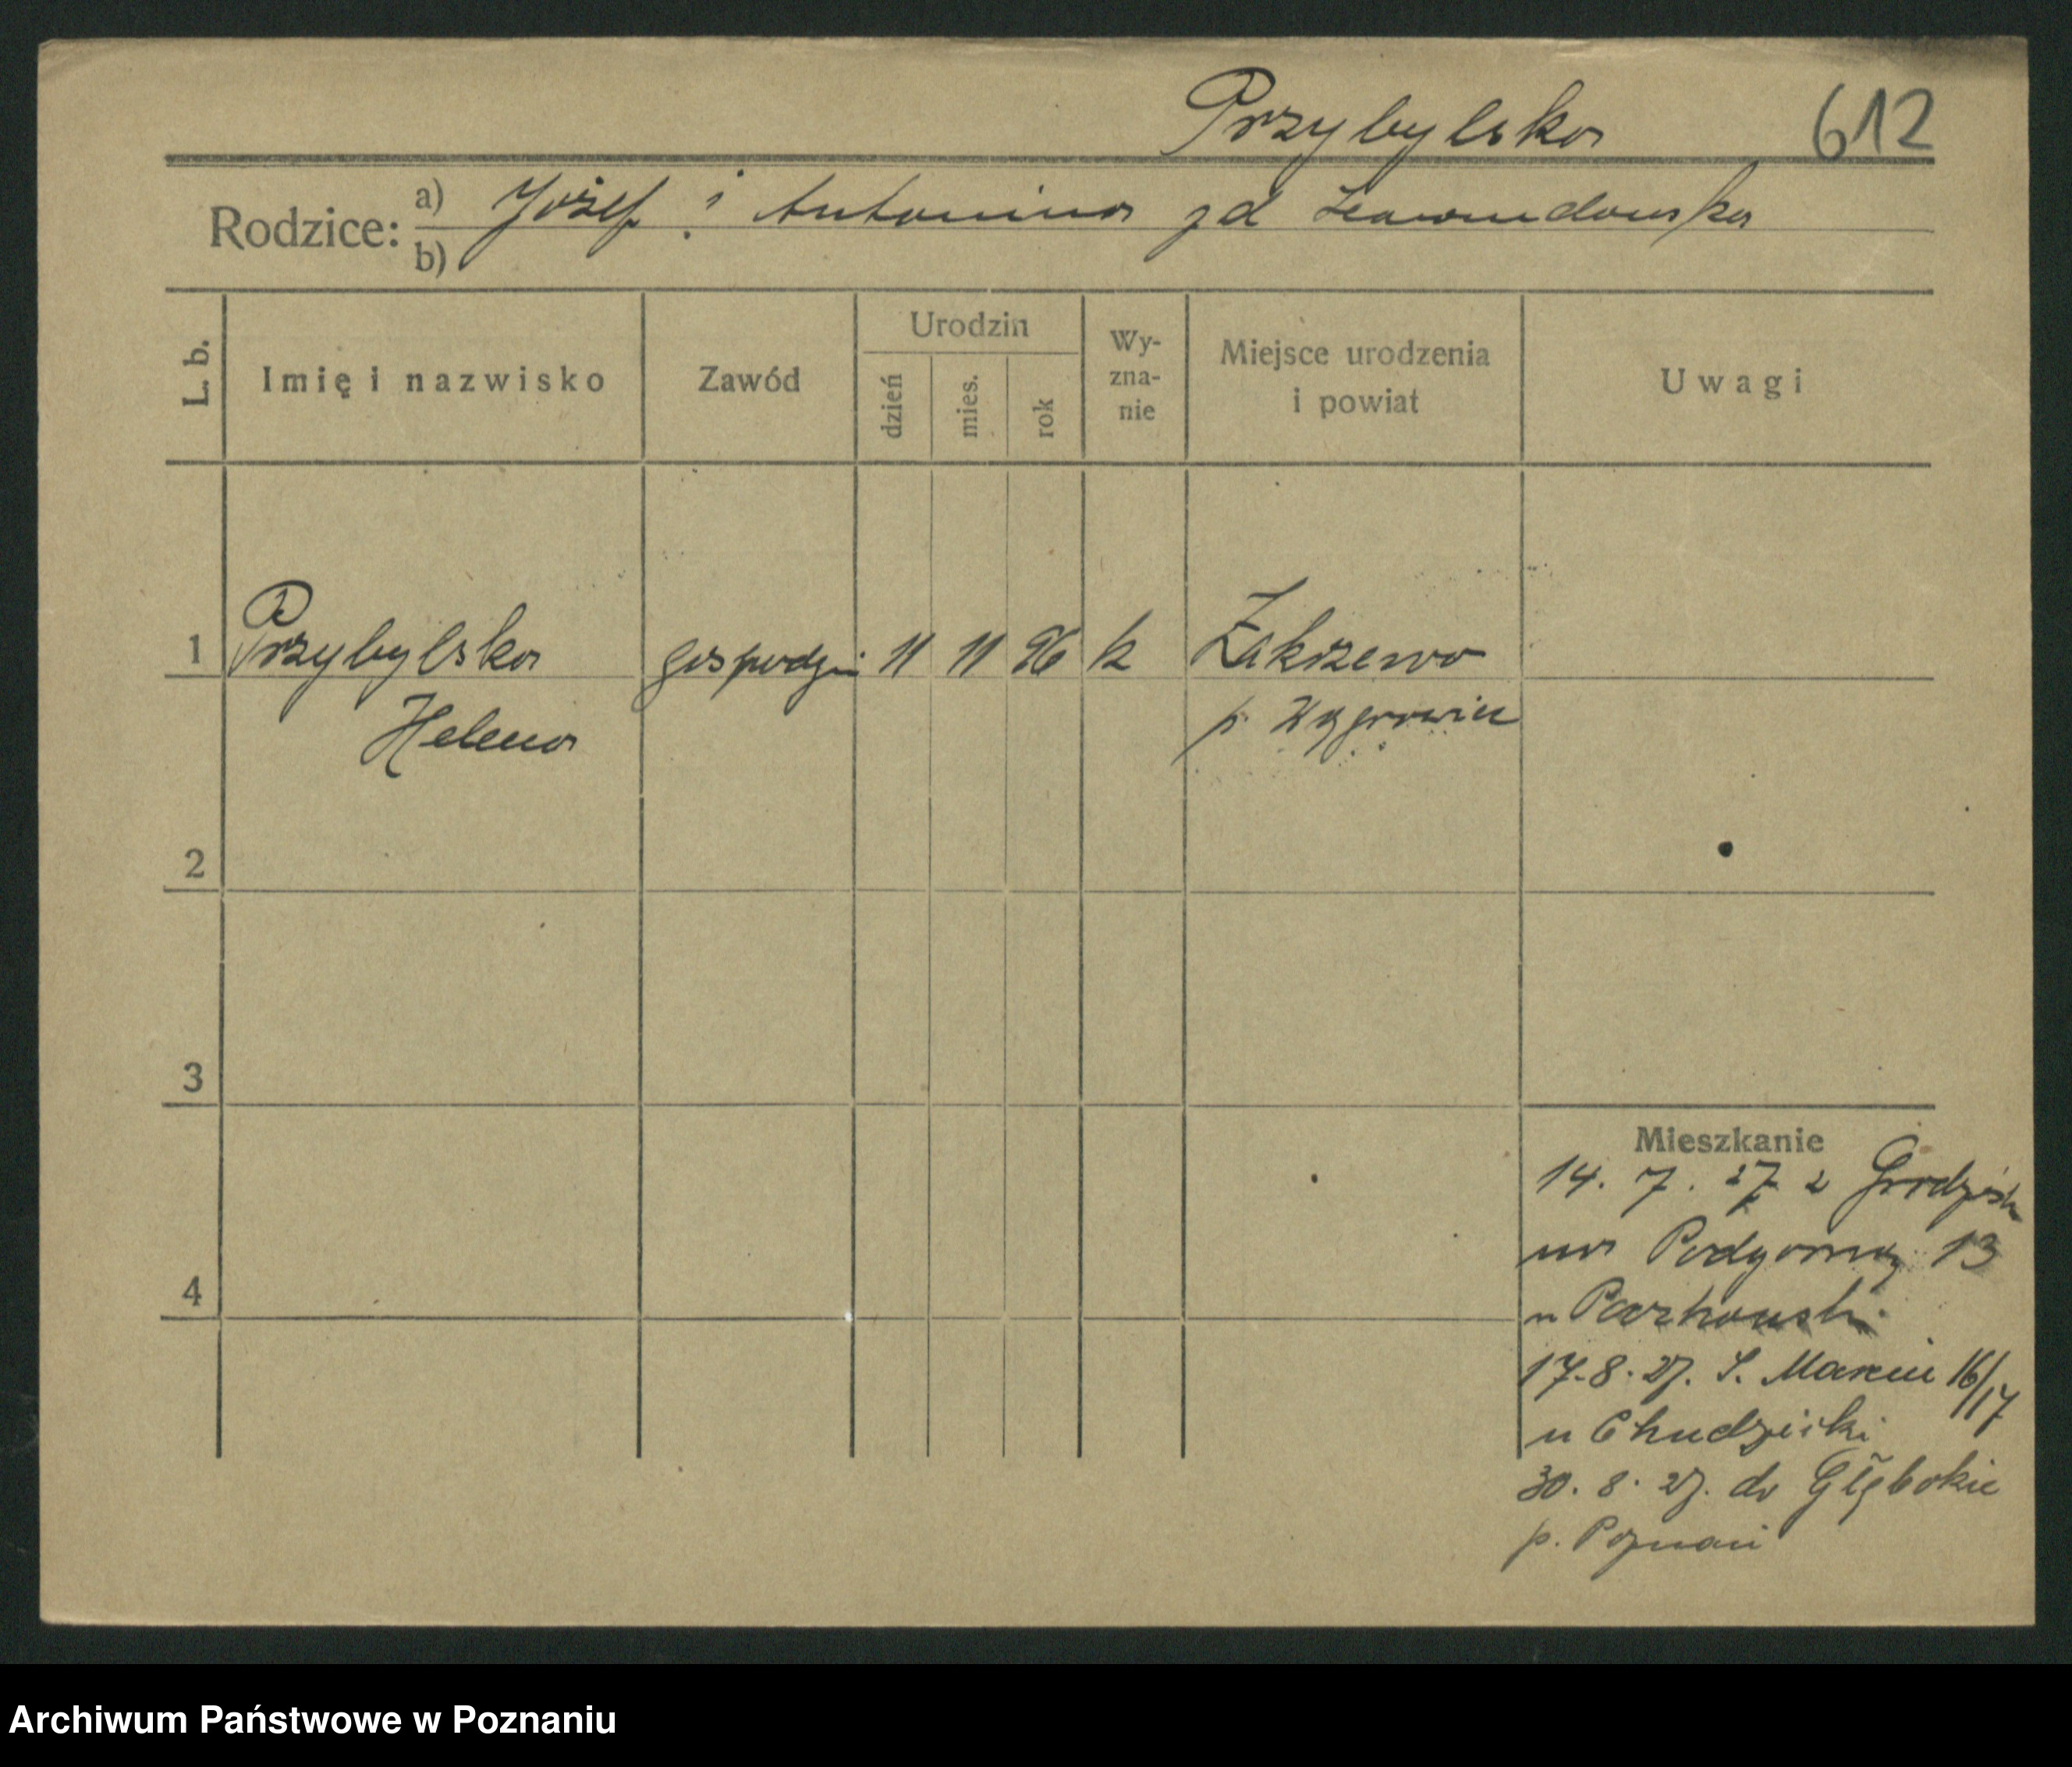 Przybylska 612
Rodzice: a) Józef i Antonina zd Lewandowska
b)
L. b. Imię i nazwisko Zawód Urodzin dzień mies. rok Wy-zna-nie Miejsce urodzenia i powiat Uwagi
1 Przybylska gospodyni 11 11 96 k Zakrzewo
Helena p. Wągrowiec
2
3
Mieszkanie
14. 7. 27 z Grodzisk
na Podgórną 13
4
u
17. 8. 27. S. Marcin 16/17
u Chudzicki
30. 8. 27. do Głębokie
p. Poznań
Archiwum Państwowe w Poznaniu